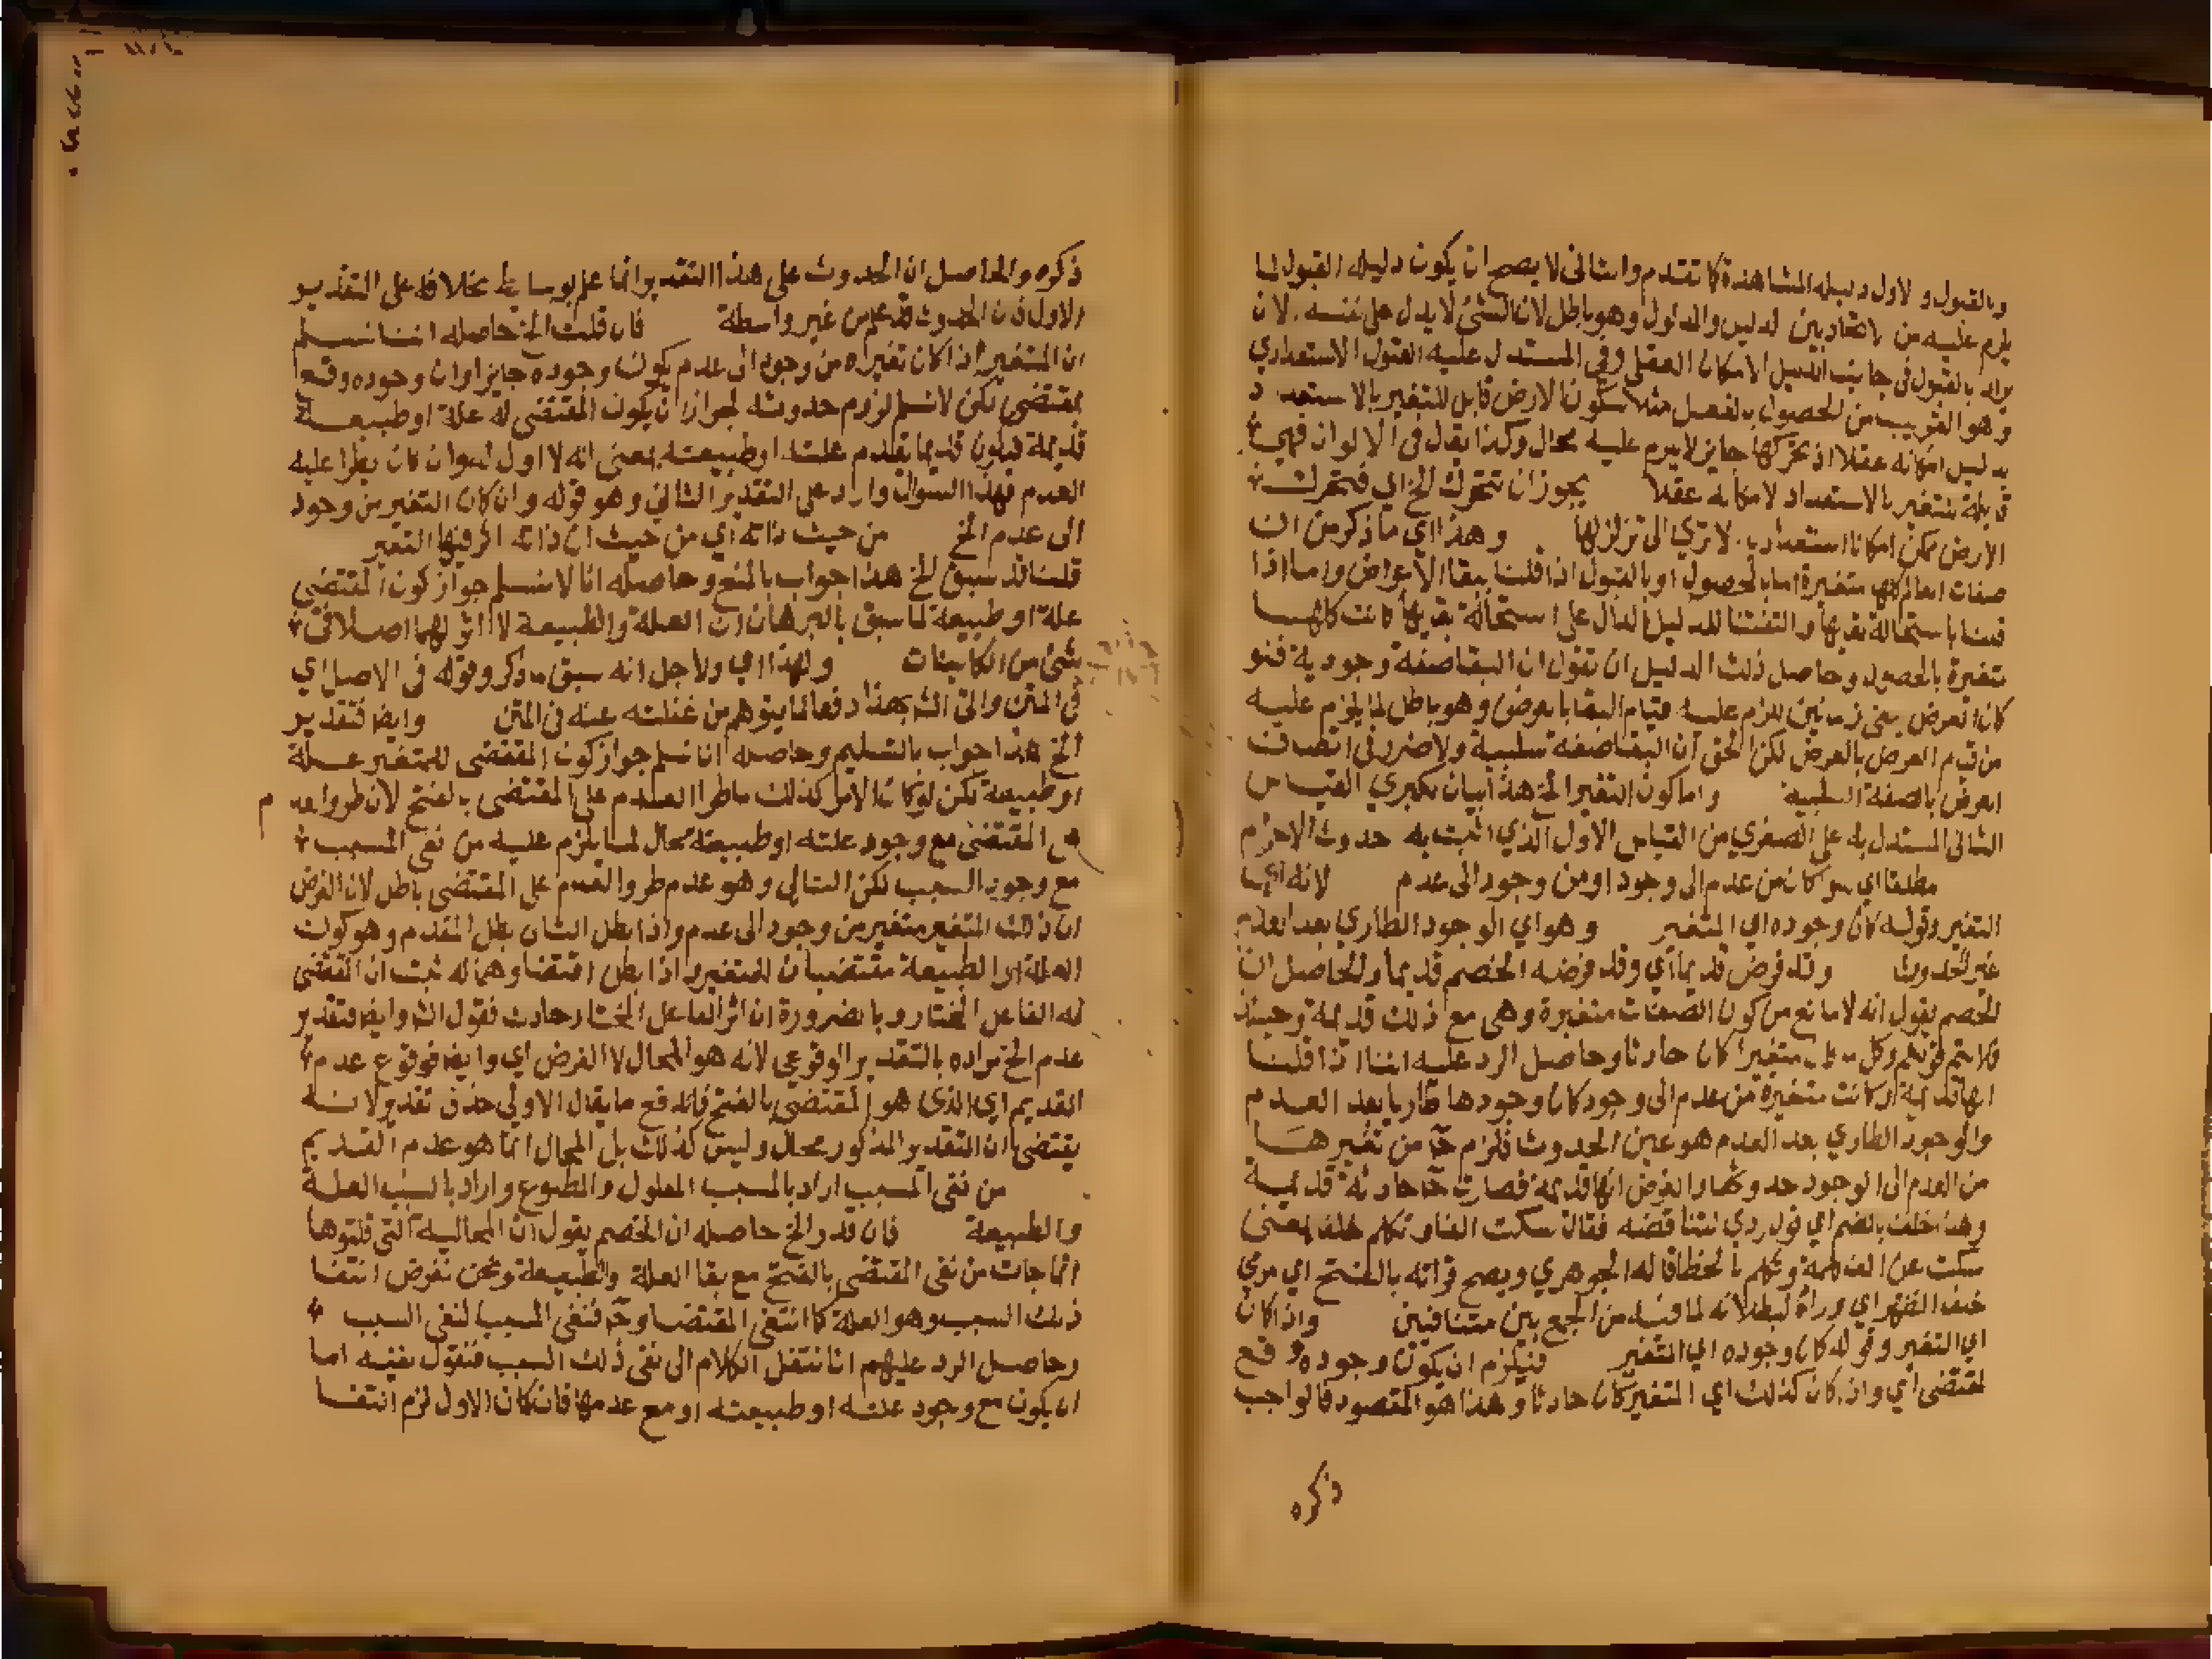 وبالقبول والاول دليله المشاهدة كما تقدم والثانى لا يصح ان يكون دليله القبول لما
يلزم عليه من اتحاد بين الدليل والمدلول وهو باطل لان الشئ لا يدل على نفسه لان
يراد بالقبول فى جانب الدليل الامكان العقلى وفى المستدل عليه القبول الاستعدادي
وهو القريب من الحصول بالفعل مثلا سكون الارض قابل للتغير بالاستعداد
بدليل امكانه عقلا اذ تحركها جايز لا يلزم عليه محال وكذا يقال فى الالوان فهى
قابلة للتغير بالاستعداد لامكانه عقلا يجوز ان تتحرك الخ اي فتحرك
الارض ممكن امكانا استعداديا الا تري الى تزلزلها وهذا اي ما ذكر من ان
صفات العالم كلها متغيرة اما بالحصول او بالقبول اذا قلنا ببقا الاعراض واما اذا
قلنا باستحالة بقايها والتفتنا للدليل الدال على استحالة بقايها كانت كلها
متغيرة بالحصول وحاصل ذلك الدليل ان تقول ان البقا صفة وجودية فلو
كان العرض يبقى زمانين للزم عليه قيام البقا بالعرض وهو باطل لما يلزم عليه
من قيام العرض بالعرض لكن الحق ان البقا صفة سلبية ولا ضرر فى اتصاف
العرض بالصفة السلبية واما كون التغير الخ هذا بيان لكبري القياس
الثانى المستدل به على الصغري من القياس الاول الذي اثبت به حدوث الاجرام
مطلقا اي سوا كان من عدم الى وجود او من وجود الى عدم لانه اي
التغير وقوله كان وجوده اي المتغير وهو اي الوجود الطاري بعد العدم
عين الحدوث وقد فرض قديما اي وقد فرضه الخصم قديما والحاصل ان
الخصم يقول انه لا مانع من كون الصفات متغيرة وهى مع ذلك قديمة وحينئذ
فلا يتم قولكم وكل متغير كان حادثا وحاصل الرد عليه اننا اذا قلنا
انها قديمة ان كانت متغيرة من عدم الى وجود كان وجودها طاريا بعد العدم
والوجود الطاري بعد العدم هو عين الحدوث فلزم ح من تغيرها
من العدم الى الوجود حدوثها والفرض انها قديمة فصارت ح حادثة قديمة
وهذا خلف بالضم اي قول ردي لتناقضه فقال سكت الفا وتكلم خلفا بمعنى
سكت عن الف كلمة وتكلم بالخطا قاله الجوهري ويصح قراته بالفتح اي مرمي
خلف الظهر اي وراه لبطلانه لما فيه من الجمع بين متنافيين واذا كان
اي التغير وقوله كان وجوده اي المتغير فيلزم ان يكون وجوده وقع
لمقتضى اي وان كان كذلك اي المتغير كان حادثا وهذا هو المقصود فالواجب
ذكره
ذكره والحاصل ان الحدوث على هذا التقدير انما علم بوسايط بخلافه على التقدير
الاول فان الحدوث قد علم من غير واسطة فان قلت الخ حاصله اننا نسلم
ان المتغير اذا كان تغيره من وجود الى عدم يكون وجوده جايزا وان وجوده وقع
لمقتضى لكن لا نسلم لزوم حدوثه لجواز ان يكون المقتضى له علة او طبيعة
قديمة فيكون قديما بقدم علته او طبيعته بمعنى انه لا اول له وان كان يطرا عليه
العدم فهذا السوال وارد على التقدير الثاني وهو قوله وان كان التغير من وجود
الى عدم الخ من حيث ذاته اي من حيث ان ذاته اثر فيها التغير
قلنا قد سبق الخ هذا جواب بالمنع وحاصله انا لا نسلم جواز كون المقتضى
علة او طبيعة لما سبق بالبرهان ان العلة والطبيعة لا اثر لهما اصلا فى
شئ من الكاينات ولهذا اي ولاجل انه سبق ما ذكر وقوله فى الاصل اي
فى المتن واتى الشه بهذا دفعا لما يتوهم من غفلته عنه فى المتن وايضا فتقدير
الخ هذا جواب بالتسليم وحاصله انا نسلم جواز كون المقتضى للمتغير علة
او طبيعة لكن لو كان الامر كذلك ما طرا العدم على المقتضى بالفتح لان طرو العدم
على المقتضى مع وجود علته او طبيعته محال لما يلزم عليه من نفى المسبب
مع وجود السبب لكن التالي وهو عدم طرو العدم على المقتضى باطل لان الفرض
ان ذلك المتغير متغير من وجود الى عدم واذا بطل التالى بطل المقدم وهو كون
العلة او الطبيعة مقتضيان للمتغير واذا بطل اقتضاوهما له ثبت ان المقتضى
له الفاعل المختار وبالضرورة ان اثر الفاعل المختار حادث فقول الشه وايضا فتقدير
عدم الخ مراده بالتقدير الوقوعي لانه هو المحال لا الفرض اي وايضا فوقوع عدم
القديم اي الذي هو المقتضى بالفتح فاندفع ما يقال الاولى حذف تقدير لانه
يقتضى ان التقدير المذكور محال وليس كذلك بل المحال انما هو عدم القديم
من نفى المسبب اراد بالمسبب المعلول والمطبوع واراد بالسبب العلة
والطبيعة فان قدر الخ حاصله ان الخصم يقول ان المحالية التى قلتوها
انما جات من نفى المقتضى بالفتح مع بقا العلة والطبيعة ونحن نفرض انتفا
ذلك السبب وهو العلة كما انتفى المقتضا وح فنفى المسبب لنفى السبب
وحاصل الرد عليهم انا ننتقل الكلام الى نفى ذلك السبب فنقول نفيه اما
ان يكون مع وجود علته او طبيعته او مع عدمها فان كان الاول لزم انتفا